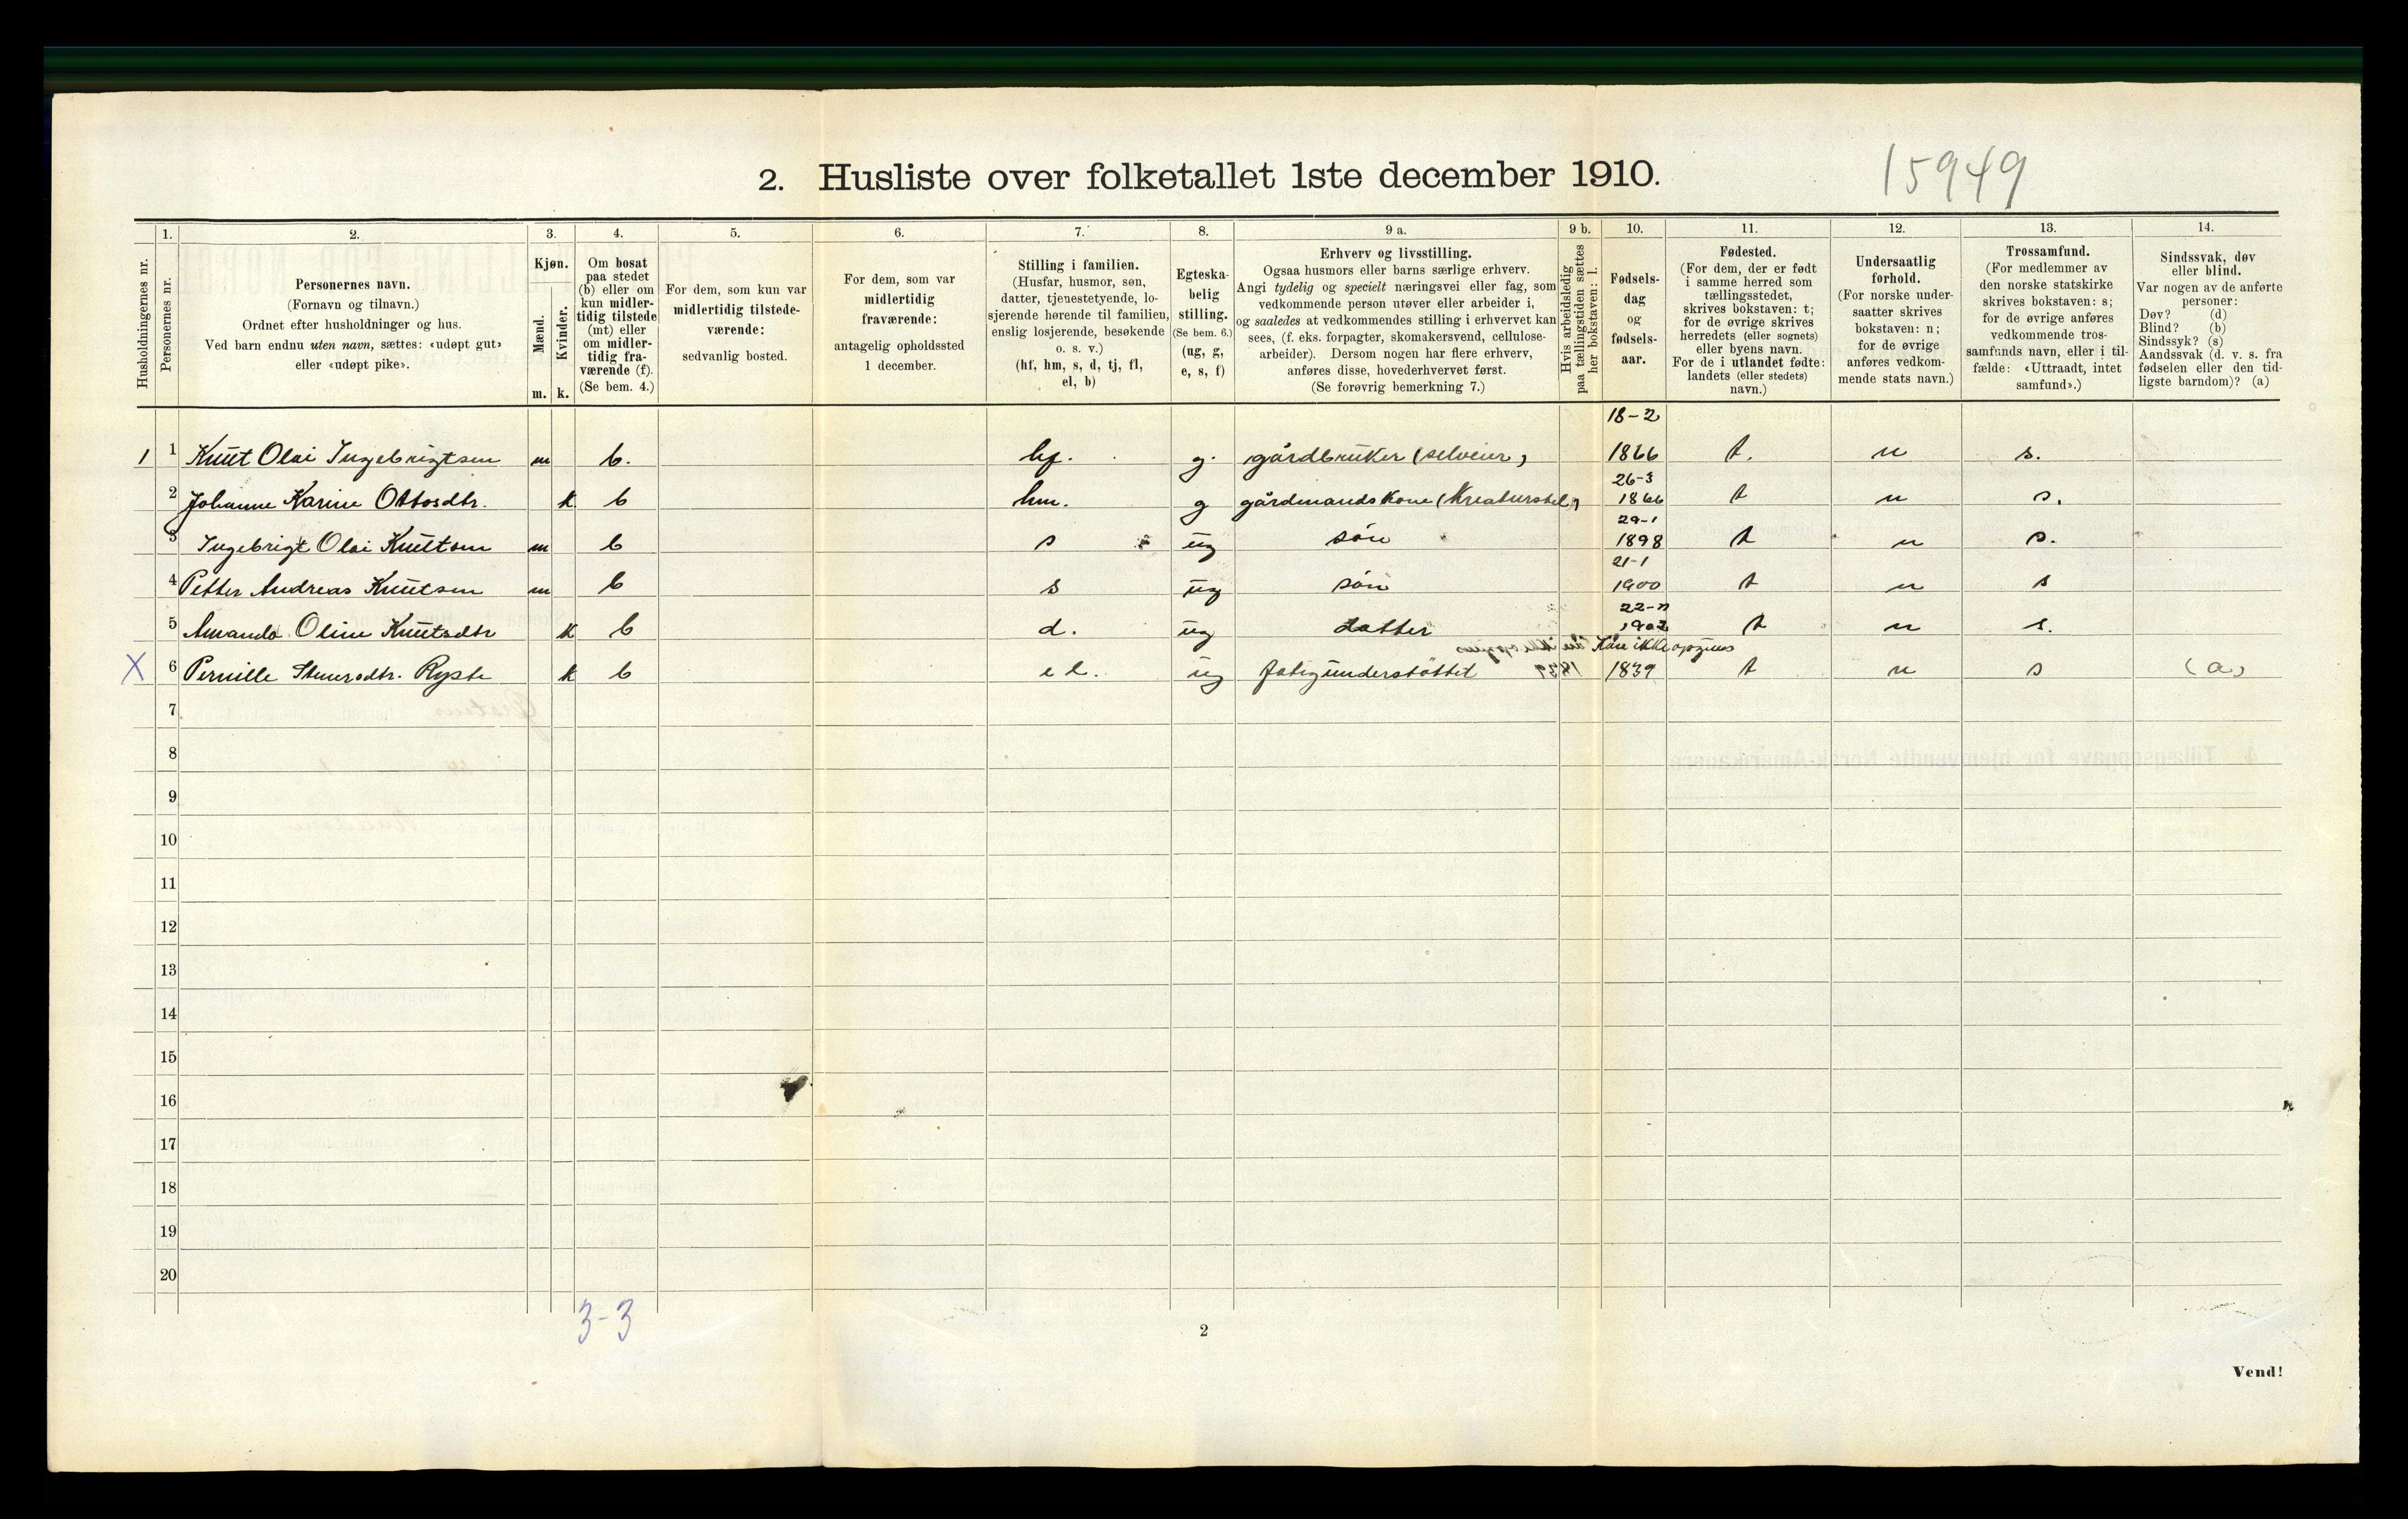 15949
2. Husliste over folketallet 1ste december 1910.
Husholdningernes nr.
1.
Personernes nr.
2.
Personernes navn.
(Fornavn og tilnavn.)
Ordnet efter husholdninger og hus.
Ved barn endnu uten navn, sættes: «udøpt gut»
eller «udøpt pike».
3.
Kjøn.
Mænd.
Kvinder.
m. k.
4.
Om bosat
paa stedet
(b) eller om
kun midler-
tidig tilstede
(mt) eller
om midler-
tidig fra-
værende (f).
(Se bem. 4.)
5.
For dem, som kun var
midlertidig tilstede-
værende:
sedvanlig bosted.
6.
For dem, som var
midlertidig
fraværende:
antagelig opholdssted
1 december.
7.
Stilling i familien.
(Husfar, husmor, søn,
datter, tjenestetyende, lo-
sjerende hørende til familien,
enslig losjerende, besøkende
o. s. v.)
(hf, hm, s, d, tj, fl,
el, b)
8.
Egteska-
belig
stilling.
(Se bem. 6.)
(ug, g,
e, s, f)
9 a.
Erhverv og livsstilling.
Ogsaa husmors eller barns særlige erhverv.
Angi tydelig og specielt næringsvei eller fag, som
vedkommende person utøver eller arbeider i,
og saaledes at vedkommendes stilling i erhvervet kan
sees, (f. eks. forpagter, skomakersvend, cellulose-
arbeider). Dersom nogen har flere erhverv,
anføres disse, hovederhvervet først.
(Se forøvrig bemerkning 7.)
9 b.
Hvis arbeidsledig
paa tællingstiden sættes
her bokstaven: l.
10.
Fødsels-
dag
og
fødsels-
aar.
11.
Fødested.
(For dem, der er født
i samme herred som
tællingsstedet,
skrives bokstaven: t;
for de øvrige skrives
herredets (eller sognets)
eller byens navn.
For de i utlandet fødte:
landets (eller stedets)
navn.)
12.
Undersaatlig
forhold.
(For norske under-
saatter skrives
bokstaven: n;
for de øvrige
anføres vedkom-
mende stats navn.)
13.
Trossamfund.
(For medlemmer av
den norske statskirke
skrives bokstaven: s;
for de øvrige anføres
vedkommende tros-
samfunds navn, eller i til-
fælde: «Uttraadt, intet
samfund».)
14.
Sindssvak, døv
eller blind.
Var nogen av de anførte
personer:
Døv? (d)
Blind? (b)
Sindssyk? (s)
Aandssvak (d. v. s. fra
fødselen eller den tid-
ligste barndom)? (a)
18-2
1 1 Knut Olai Ingebrigtsen m b. hf. g. gårdbruker (selveier) 1866 t. n s.
26-3
2 Johanne Karine Ottosdtr. k b hm. g gårdmandskone (Kreaturstel) 1866 t n s.
29-1
3 Ingebrigt Olai Knutsen m b s ug søn 1898 t n s.
21-1
4 Petter Andreas Knutsen m b s ug søn 1900 t n s
5 Amanda Oline Knutsdtr k b d. ug datter 1902 t n s.
Kan ikke opgives
X 6 Pernille Stenersdtr. Ryste k b el. ug fatigunderstöttet 1839 t n s (a)
7
8
9
10
11
12
13
14
15
16
17
18
19
20
3-3
2
Vend!